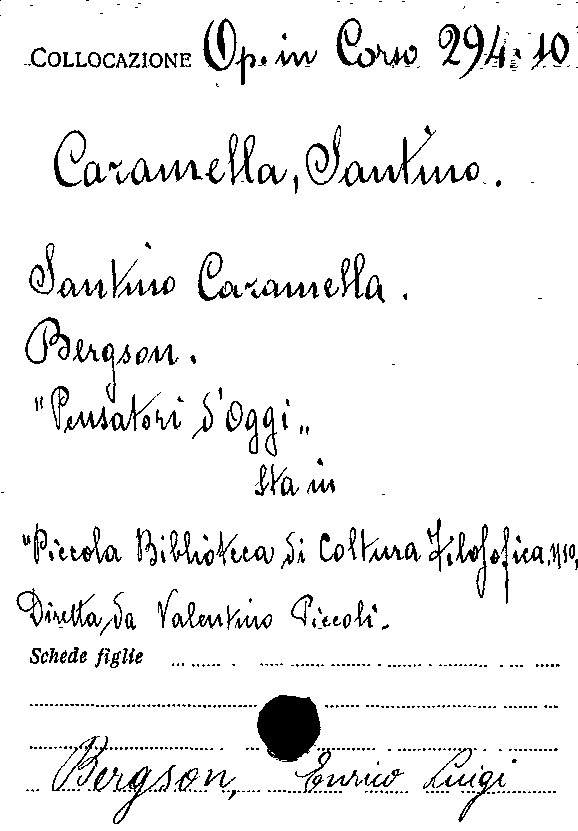 COLLOCAZIONE Op. in Corso 294-10
Caramella, Santino.
Santino Caramella.
Bergson.
"Pensatori d'Oggi"
Sta in
"Piccola Biblioteca di Coltura Filosofica,
Diretta da Valentino Piccoli.
Schede figlie
Bergson, Enrico Luigi